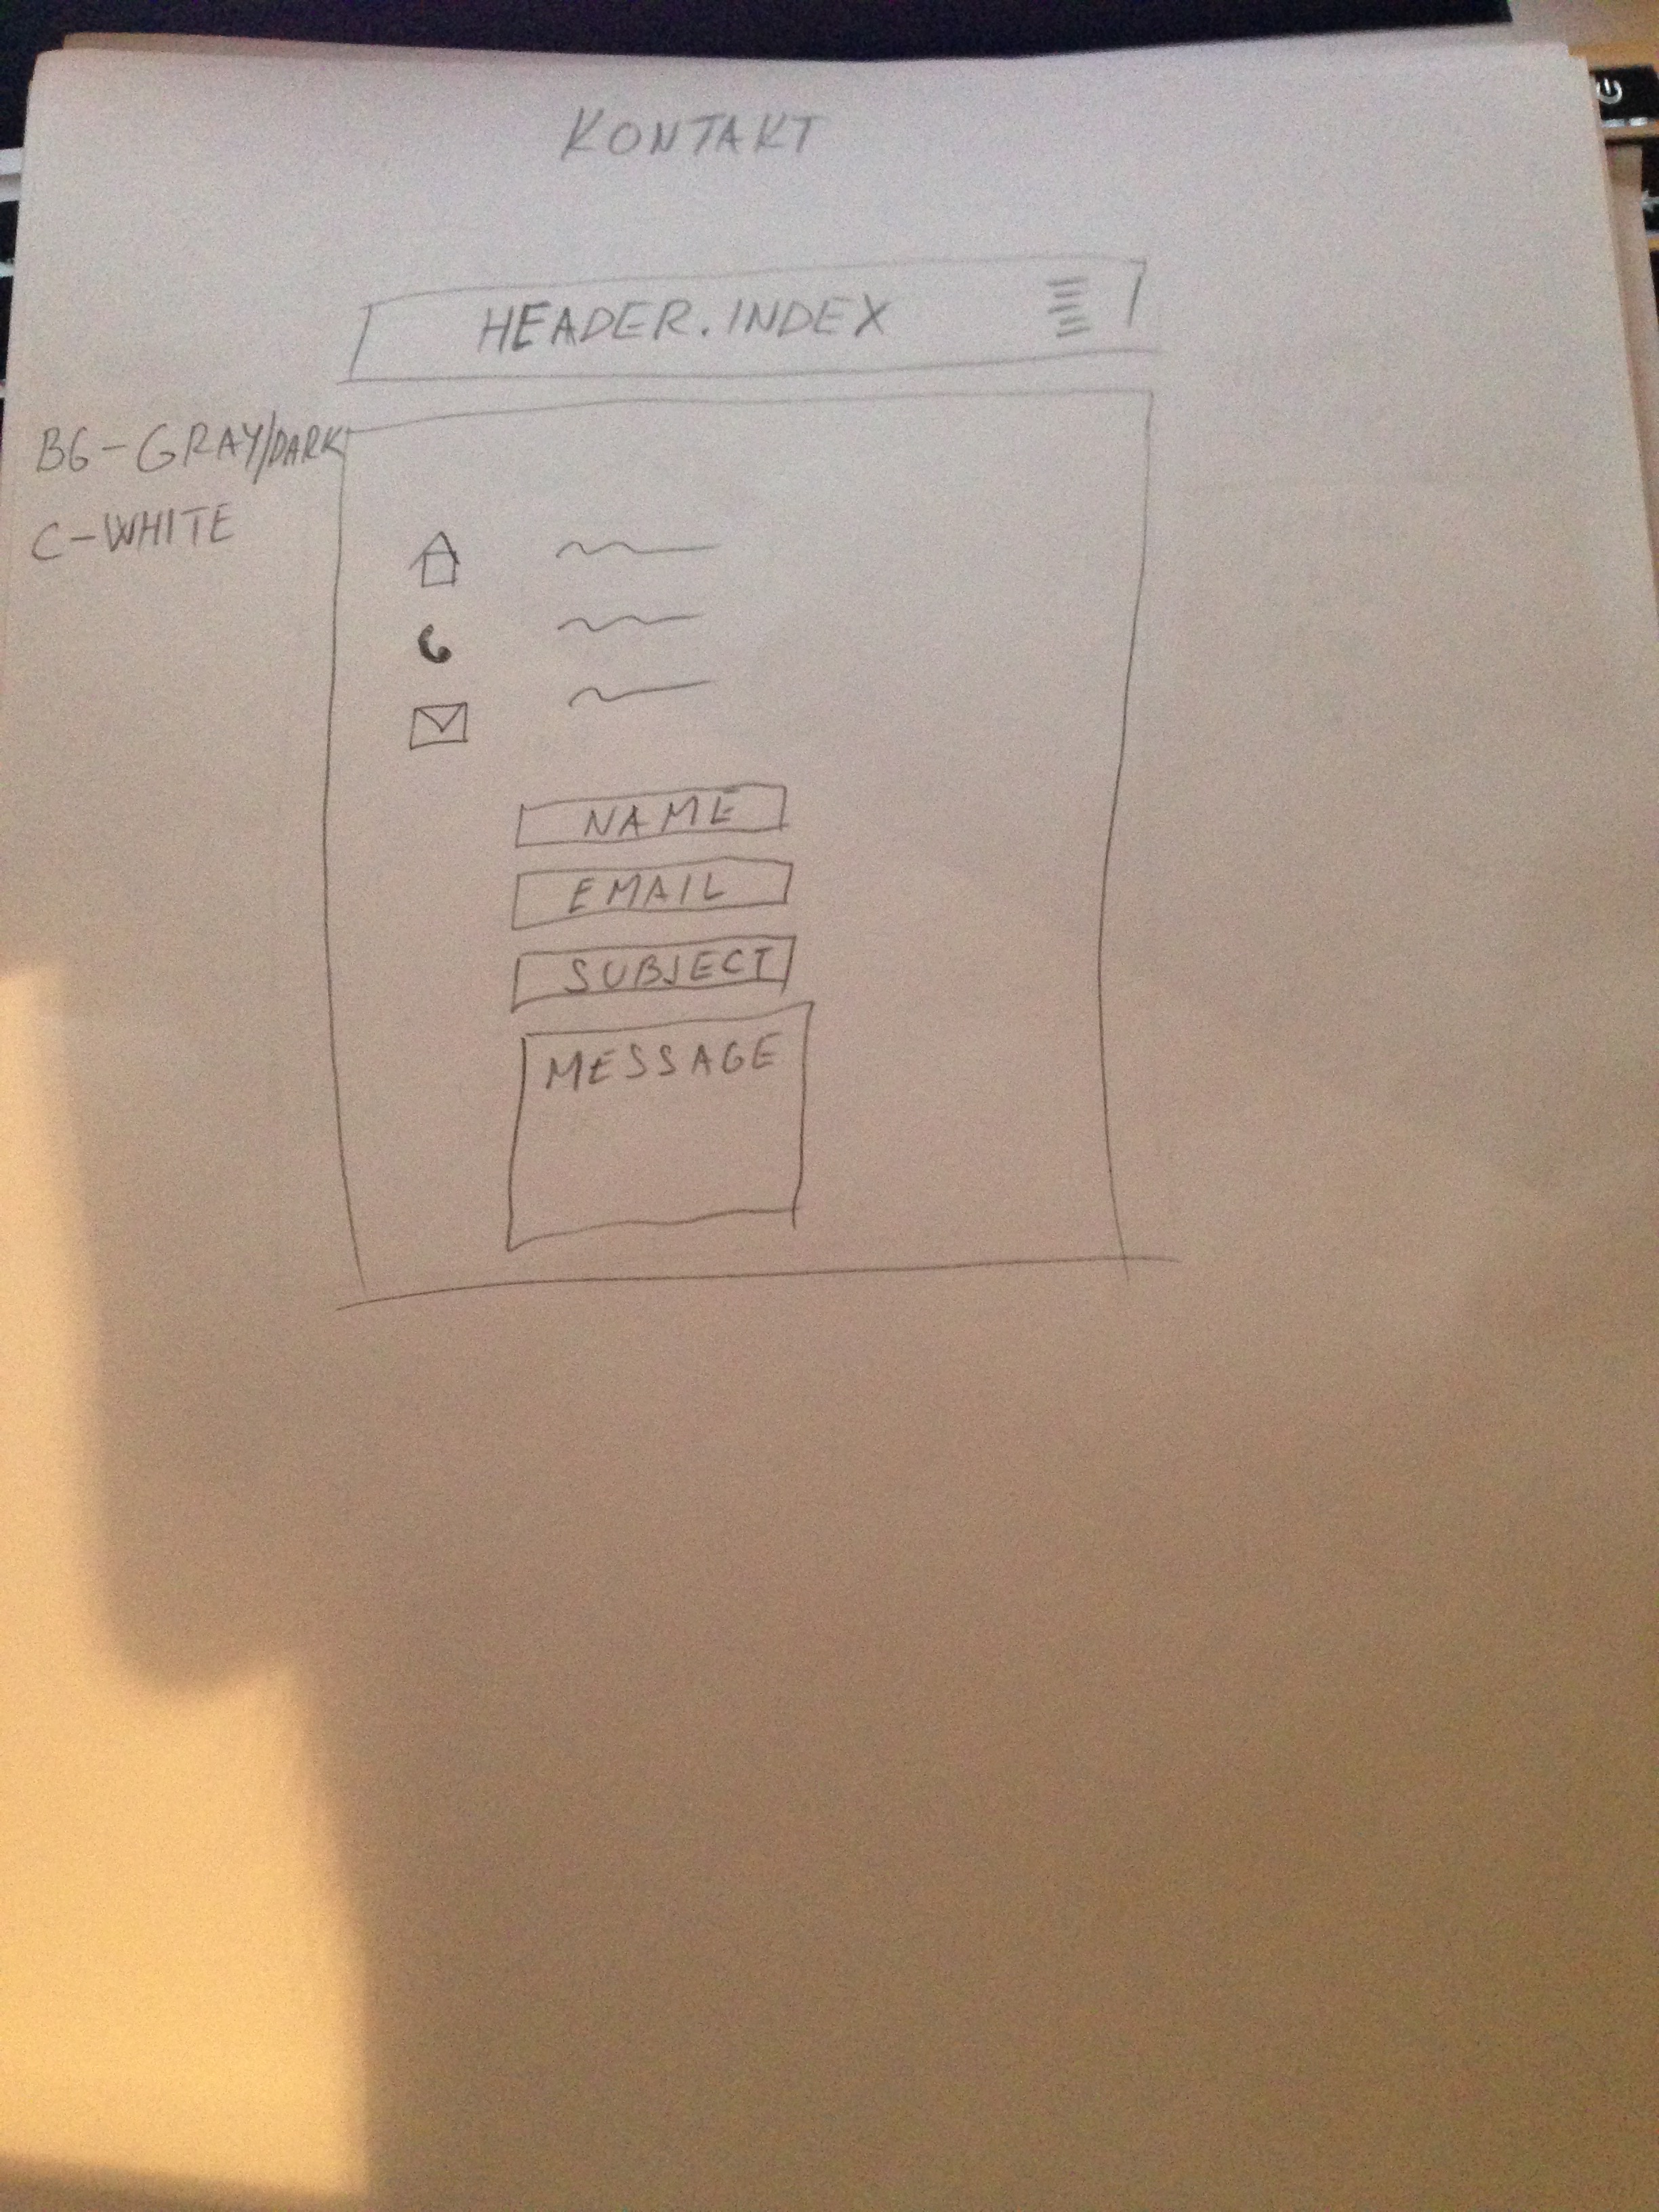 KONTAKT
HEADER.INDEX
BG-GRAY/DARK
C-WHITE
NAME
EMAIL
SUBJECT
MESSAGE